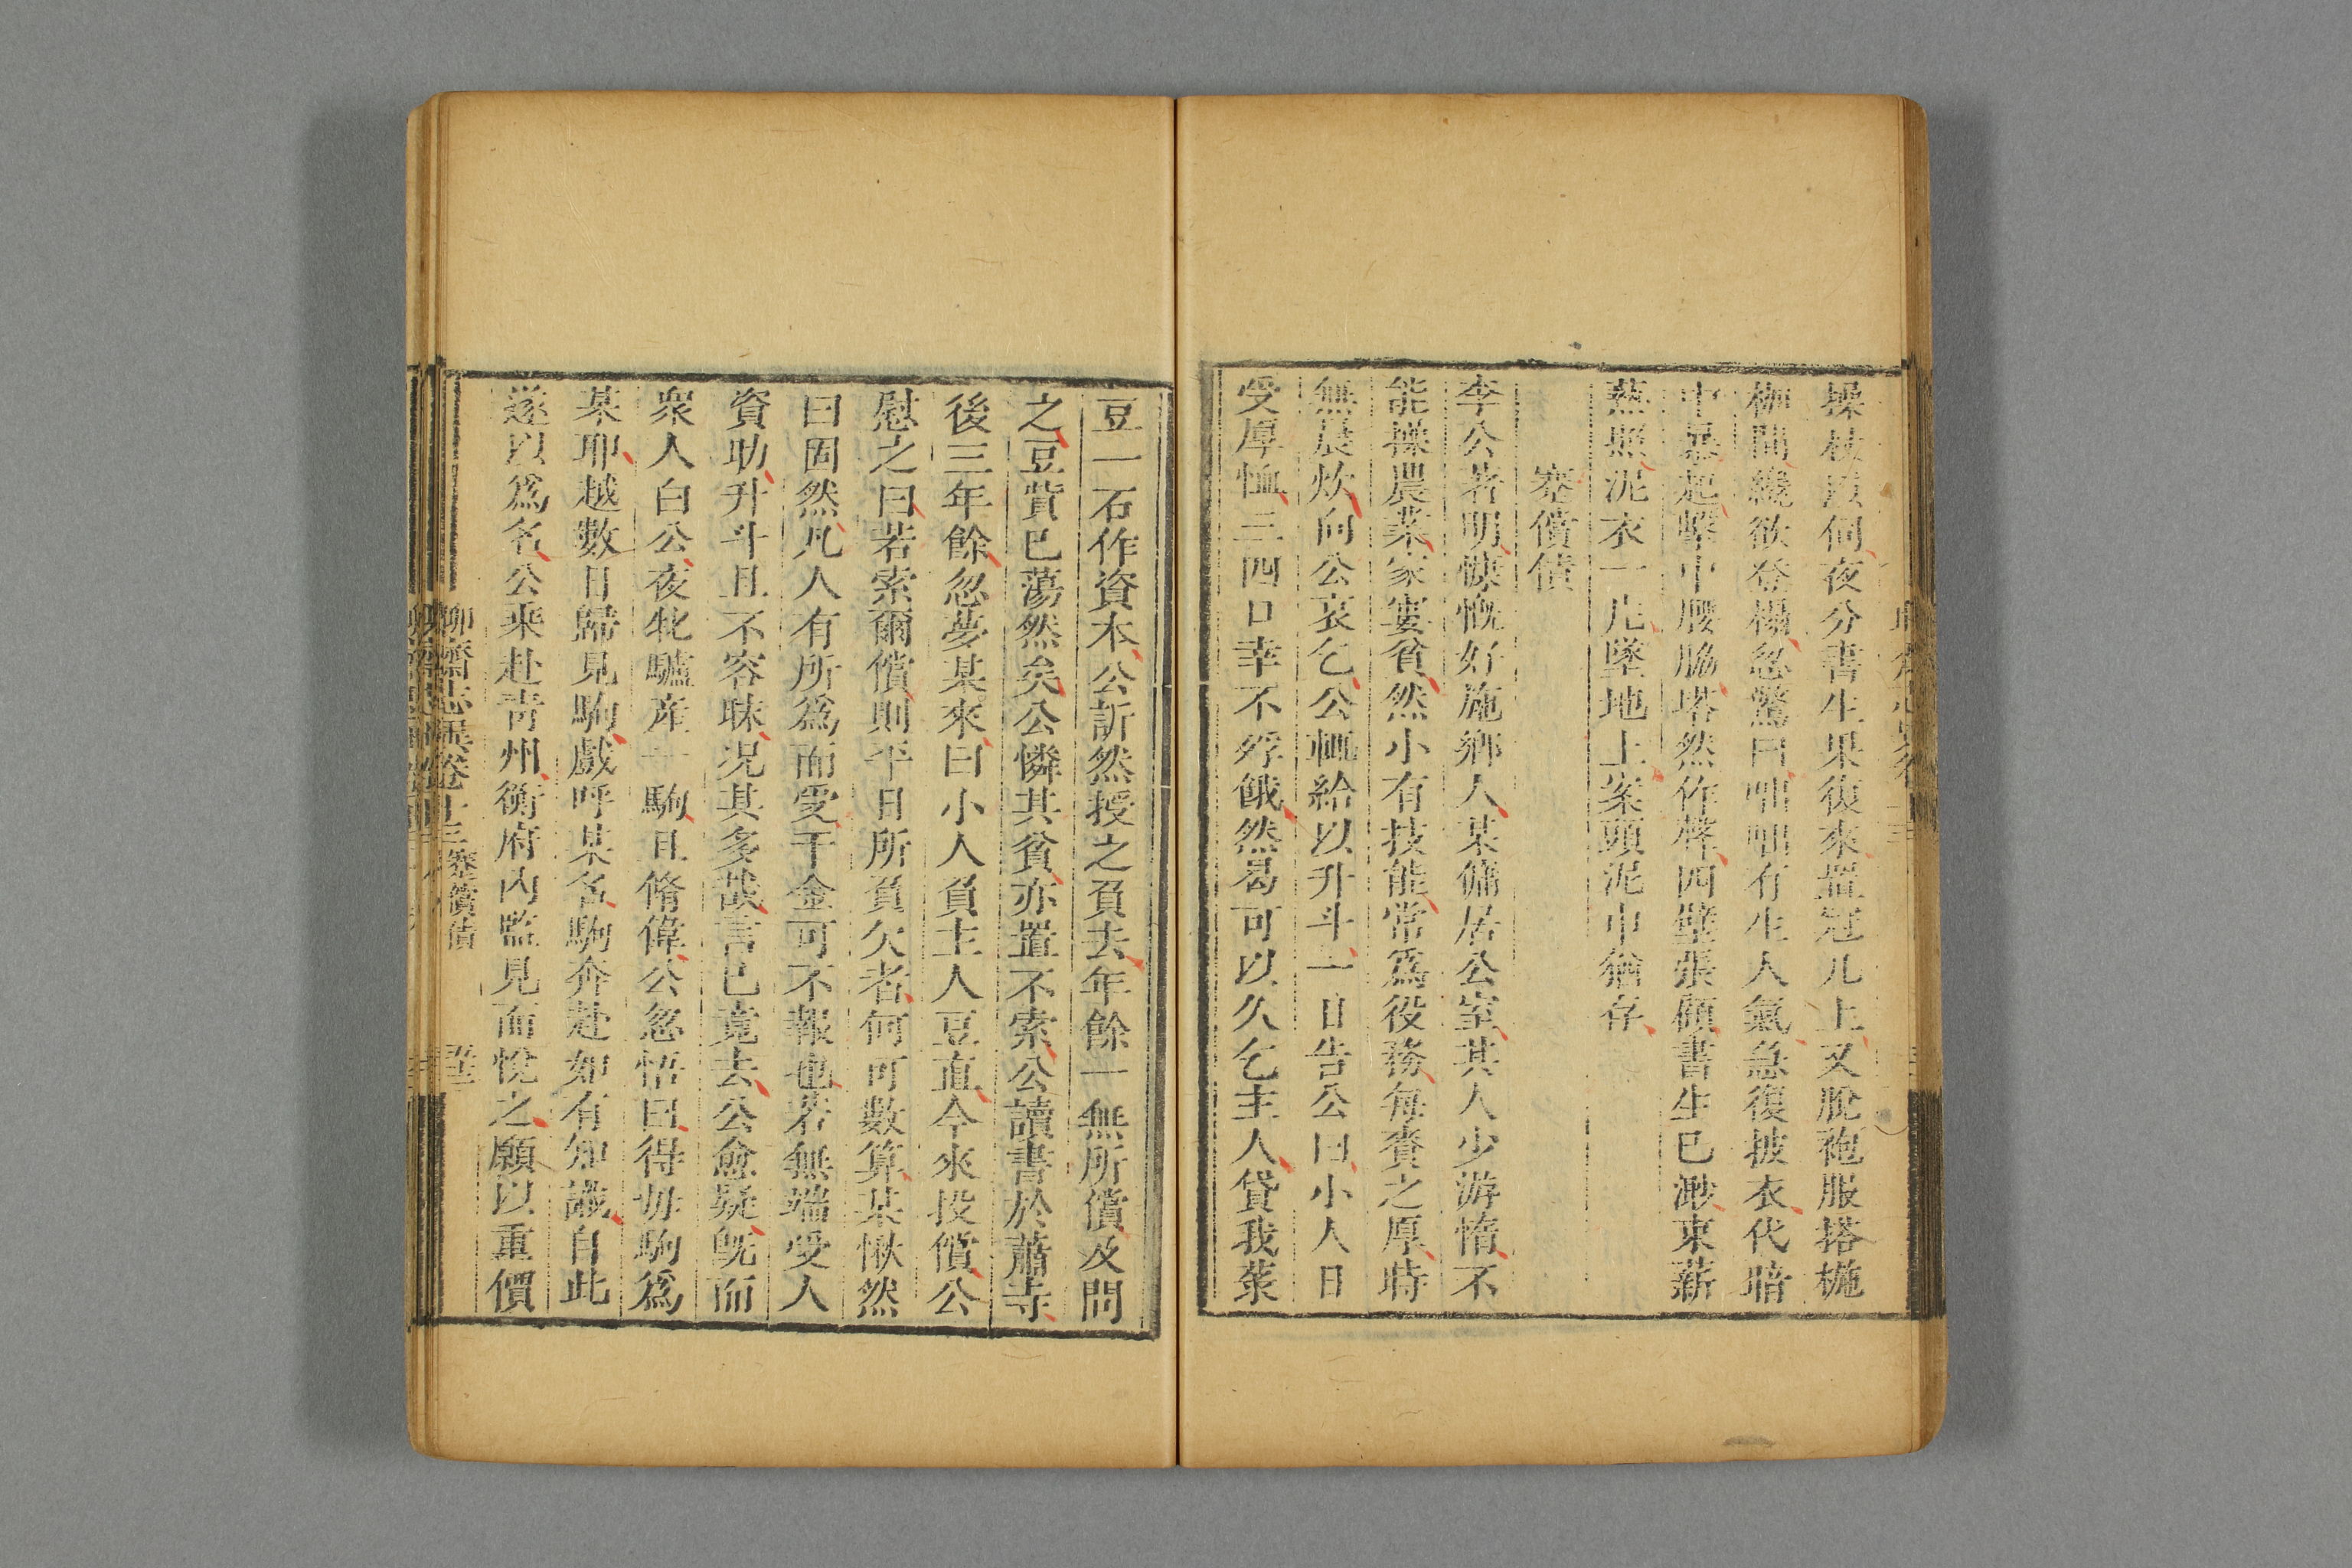 操杖以伺夜分書生果復來置冠几上又脫袍服搭椸
枷間纔欲登榻忽驚曰咄咄有生人氣急復披衣代暗
中暴起擊中腰脇塔然作聲四壁張顧書生已渺束薪
爇照泥衣一片墜地上案頭泥巾猶存
蹇償債
李公著明慷慨好施鄉人某傭居公室其人少游惰不
能操農業家窶貧然小有技能常爲役務每賚之厚時
無晨炊向公哀乞公輒給以升斗一日告公曰小人日
受厚恤三四口幸不殍餓然曷可以久乞主人貸我菉
豆一石作資本公訢然授之負去年餘一無所償及問
之豆貲已蕩然矣公憐其貧亦置不索公讀書於蕭寺
後三年餘忽夢某來曰小人負主人豆直今來投償公
慰之曰若索爾償則平日所負欠者何可數算某愀然
曰固然凡人有所爲而受千金可不報也若無端受人
資助升斗且不容昧况其多哉言已竟去公愈疑旣而
衆人白公夜牝驢產一駒且脩偉公忽悟曰得毋駒爲
某耶越數日歸見駒戲呼某名駒奔赴如有知識自此
遂以爲名公乘赴靑州衡府內監見而悅之願以重價
聊齋志異卷十三蹇償債